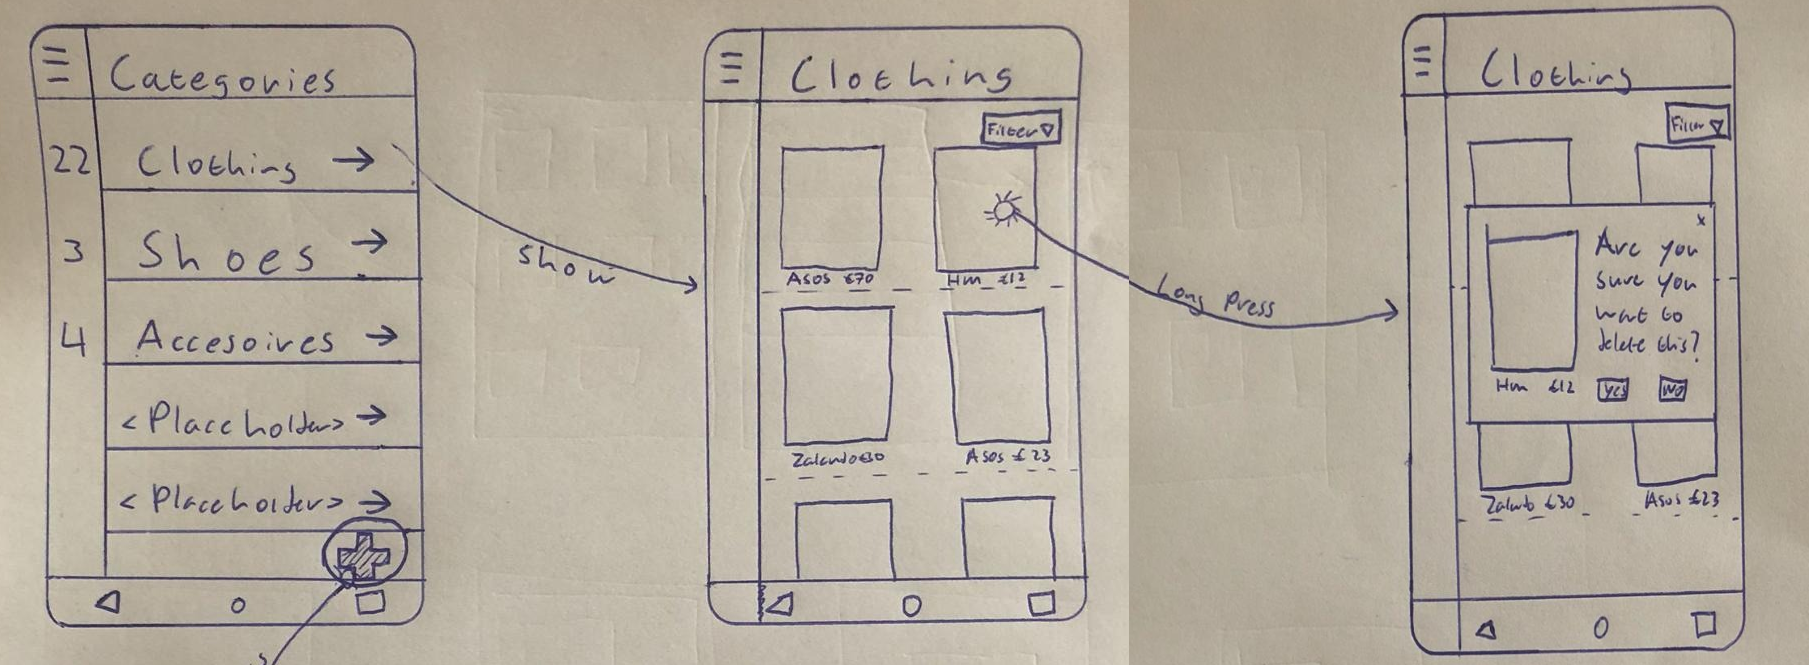 Categories
22 Clothing →
3 Shoes →
4 Accesoires →
<Placeholder> →
<Placeholder> →
Show
Clothing
Filter ▽
Asos £70 Hm £12
Zalando £30 Asos £23
Long Press
Clothing
Filter ▽
x
Are you
sure you
want to
delete this?
Hm £12 Yes No
Zalando £30 Asos £23